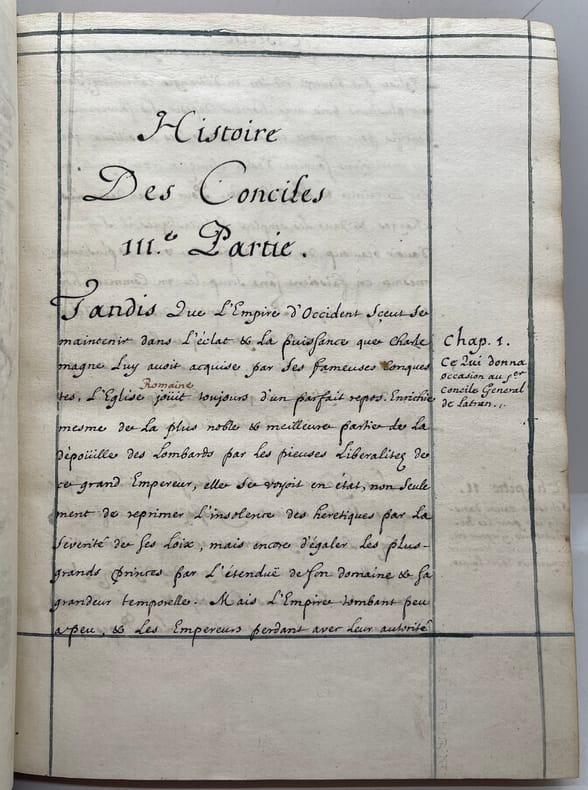 Histoire
Des Conciles
III.e Partie.
Tandis Que L'Empire d'Occident Sçeut se
maintenir dans L'éclat & La Puissance que Charle
magne Luy avoit acquise par ses fameuses Conques
Romaine
tes, L'Eglise joüit toujours d'un parfait repos. Enrichie
mesme de La plus noble & meilleure partie de La
dépoüille des Lombards par les pieuses Liberalitez de
ce grand Empereur, elle se voyoit en état, non seule
ment de reprimer L'insolence des heretiques par La
Severité de ses Loix, mais encore d'égaler Les plus-
grands Princes par L'étenduë de son domaine & sa
grandeur temporelle. Mais L'Empire tombant peu
a peu, & Les Empereurs perdant avec Leur autorité
Chap. 1.
Ce Qui donna
occasion au 1er
Concile General
de Latran.